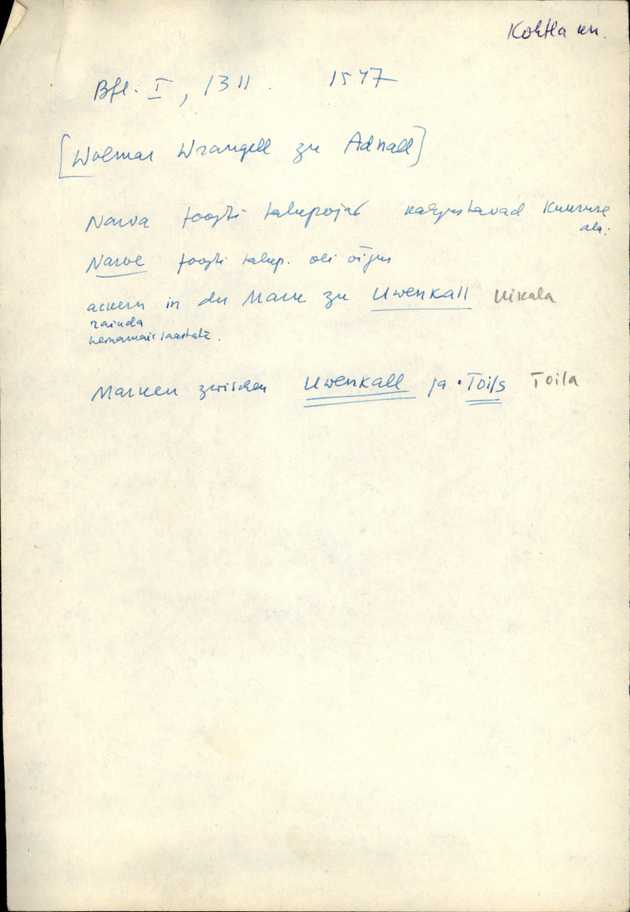 Kohtla kh.
Bfl. I, 1311. 1547
[Wolmar Wrangell zu Adnall]
Narva foogti talupojad kaljustavad
ala:
Narve foogti talup. oli õigus
ackern in der Marc zu Uwenkall Uikala
rainda
Marken zwischen Uwenkall ja Toils Toila